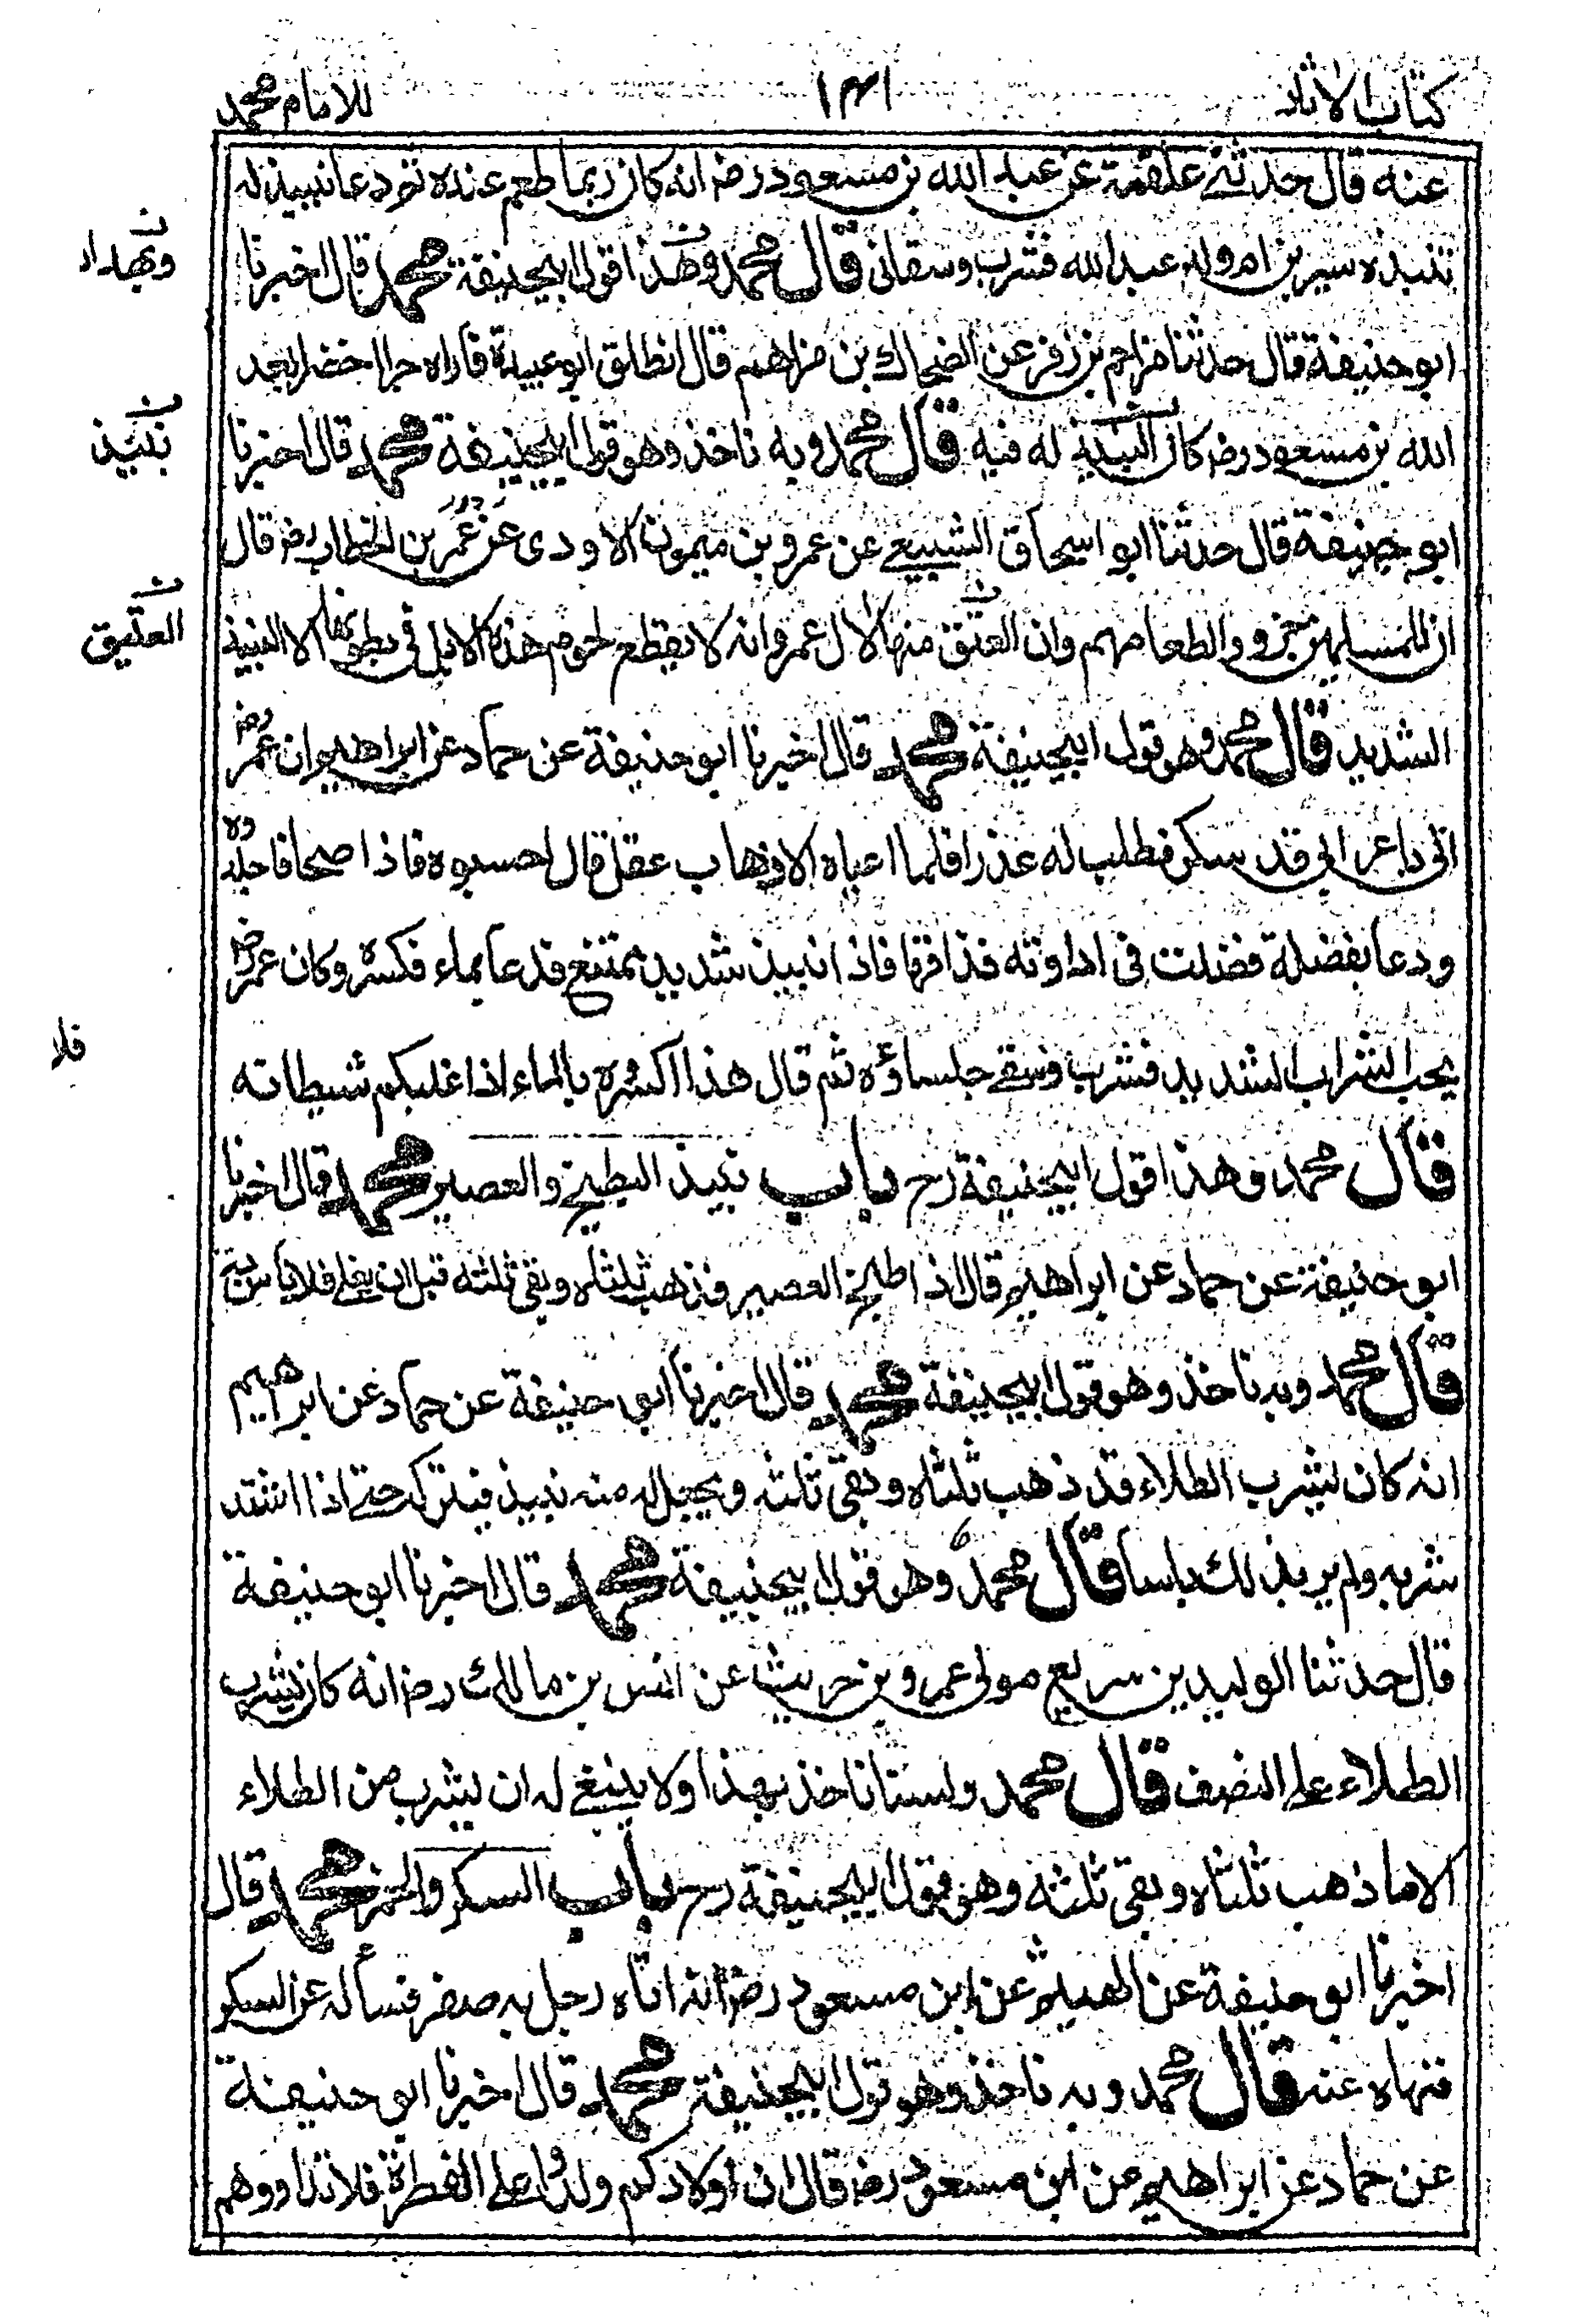 كتاب الاثار ١٣١ للامام محمد
عنه قال حدثنى علقمة عن عبد الله بن مسعود رضـ انه كان ربما طعم عنده ثم دعا بنبيذ له
تنبذه سيرين ام ولد عبد الله فشرب وسقانى قال محمد وهذا قول ابيحنيفة محمد قال اخبرنا
ابو حنيفة قال حدثنا مزاحم بن زفر عن الضحاك بن مزاهم قال انطلق ابو عبيدة فاراه جرا اخضر لعبد
الله بن مسعود رضـ كان النبيذ له فيه قال محمد وبه ناخذ وهو قول ابيحنيفة محمد قال اخبرنا
ابو حنيفة قال حدثنا ابو اسحاق السبيعي عن عمرو بن ميمون الاودى عن عمر بن الخطاب رضـ قال
ان للمسلمين جزورا لطعامهم وان العتق منها لال عمر وانه لا يقطع لحوم هذه الابل فى بطوننا الا النبيذ
الشديد قال محمد وهو قول ابيحنيفة محمد قال اخبرنا ابو حنيفة عن حماد عن ابراهيم ان عمر رضـ
اتى باعرابي قد سكر فطلب له عذرا فلما اعياه الا ذهاب عقل قال احسبوه فاذا صحا فاجلدوه
ودعا بفضلة فضلت فى اداوته فذاقها فاذا نبيذ شديد ممتنع فدعا بماء فكسره وكان عمر رضـ
يحب الشراب الشديد فشرب وسقى جلساؤه ثم قال هذا اكسروه بالماء اذا غلبكم شيطانه
قال محمد وهذا قول ابيحنيفة رح باب نبيذ البطيخ والعصير محمد قال اخبرنا
ابو حنيفة عن حماد عن ابراهيم قال اذا طبخ العصير فذهب ثلثاه وبقى ثلثه قبل ان يغلى فلا باس به
قال محمد وبه ناخذ وهو قول ابيحنيفة محمد قال اخبرنا ابو حنيفة عن حماد عن ابراهيم
انه كان يشرب الطلاء قد ذهب ثلثاه وبقى ثلثه ويجعل له منه نبيذ فيتركه حتى اذا اشتد
شربه ولم ير بذلك باسا قال محمد وهو قول ابيحنيفة محمد قال اخبرنا ابو حنيفة
قال حدثنا الوليد بن سريع مولى عمرو بن حريث عن انس بن مالك رضـ انه كان يشرب
الطلاء على النصف قال محمد ولسنا ناخذ بهذا ولا ينبغى له ان يشرب من الطلاء
الا ما ذهب ثلثاه وبقى ثلثه وهو قول ابيحنيفة رح باب السكر والخمر محمد قال
اخبرنا ابو حنيفة عن الهيثم عن ابن مسعود رضـ انه اتاه رجل به صفر فسأله عن السكر
فنهاه عنه قال محمد وبه ناخذ وهو قول ابيحنيفة محمد قال اخبرنا ابو حنيفة
عن حماد عن ابراهيم عن ابن مسعود رضـ قال ان اولادكم ولدوا على الفطرة فلا تداووهم
وبهذا
بنبيذ
العتيق
فلا